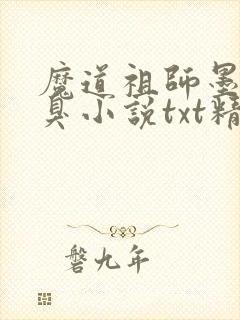 魔道祖師墨
臭小說txt精
磐九年